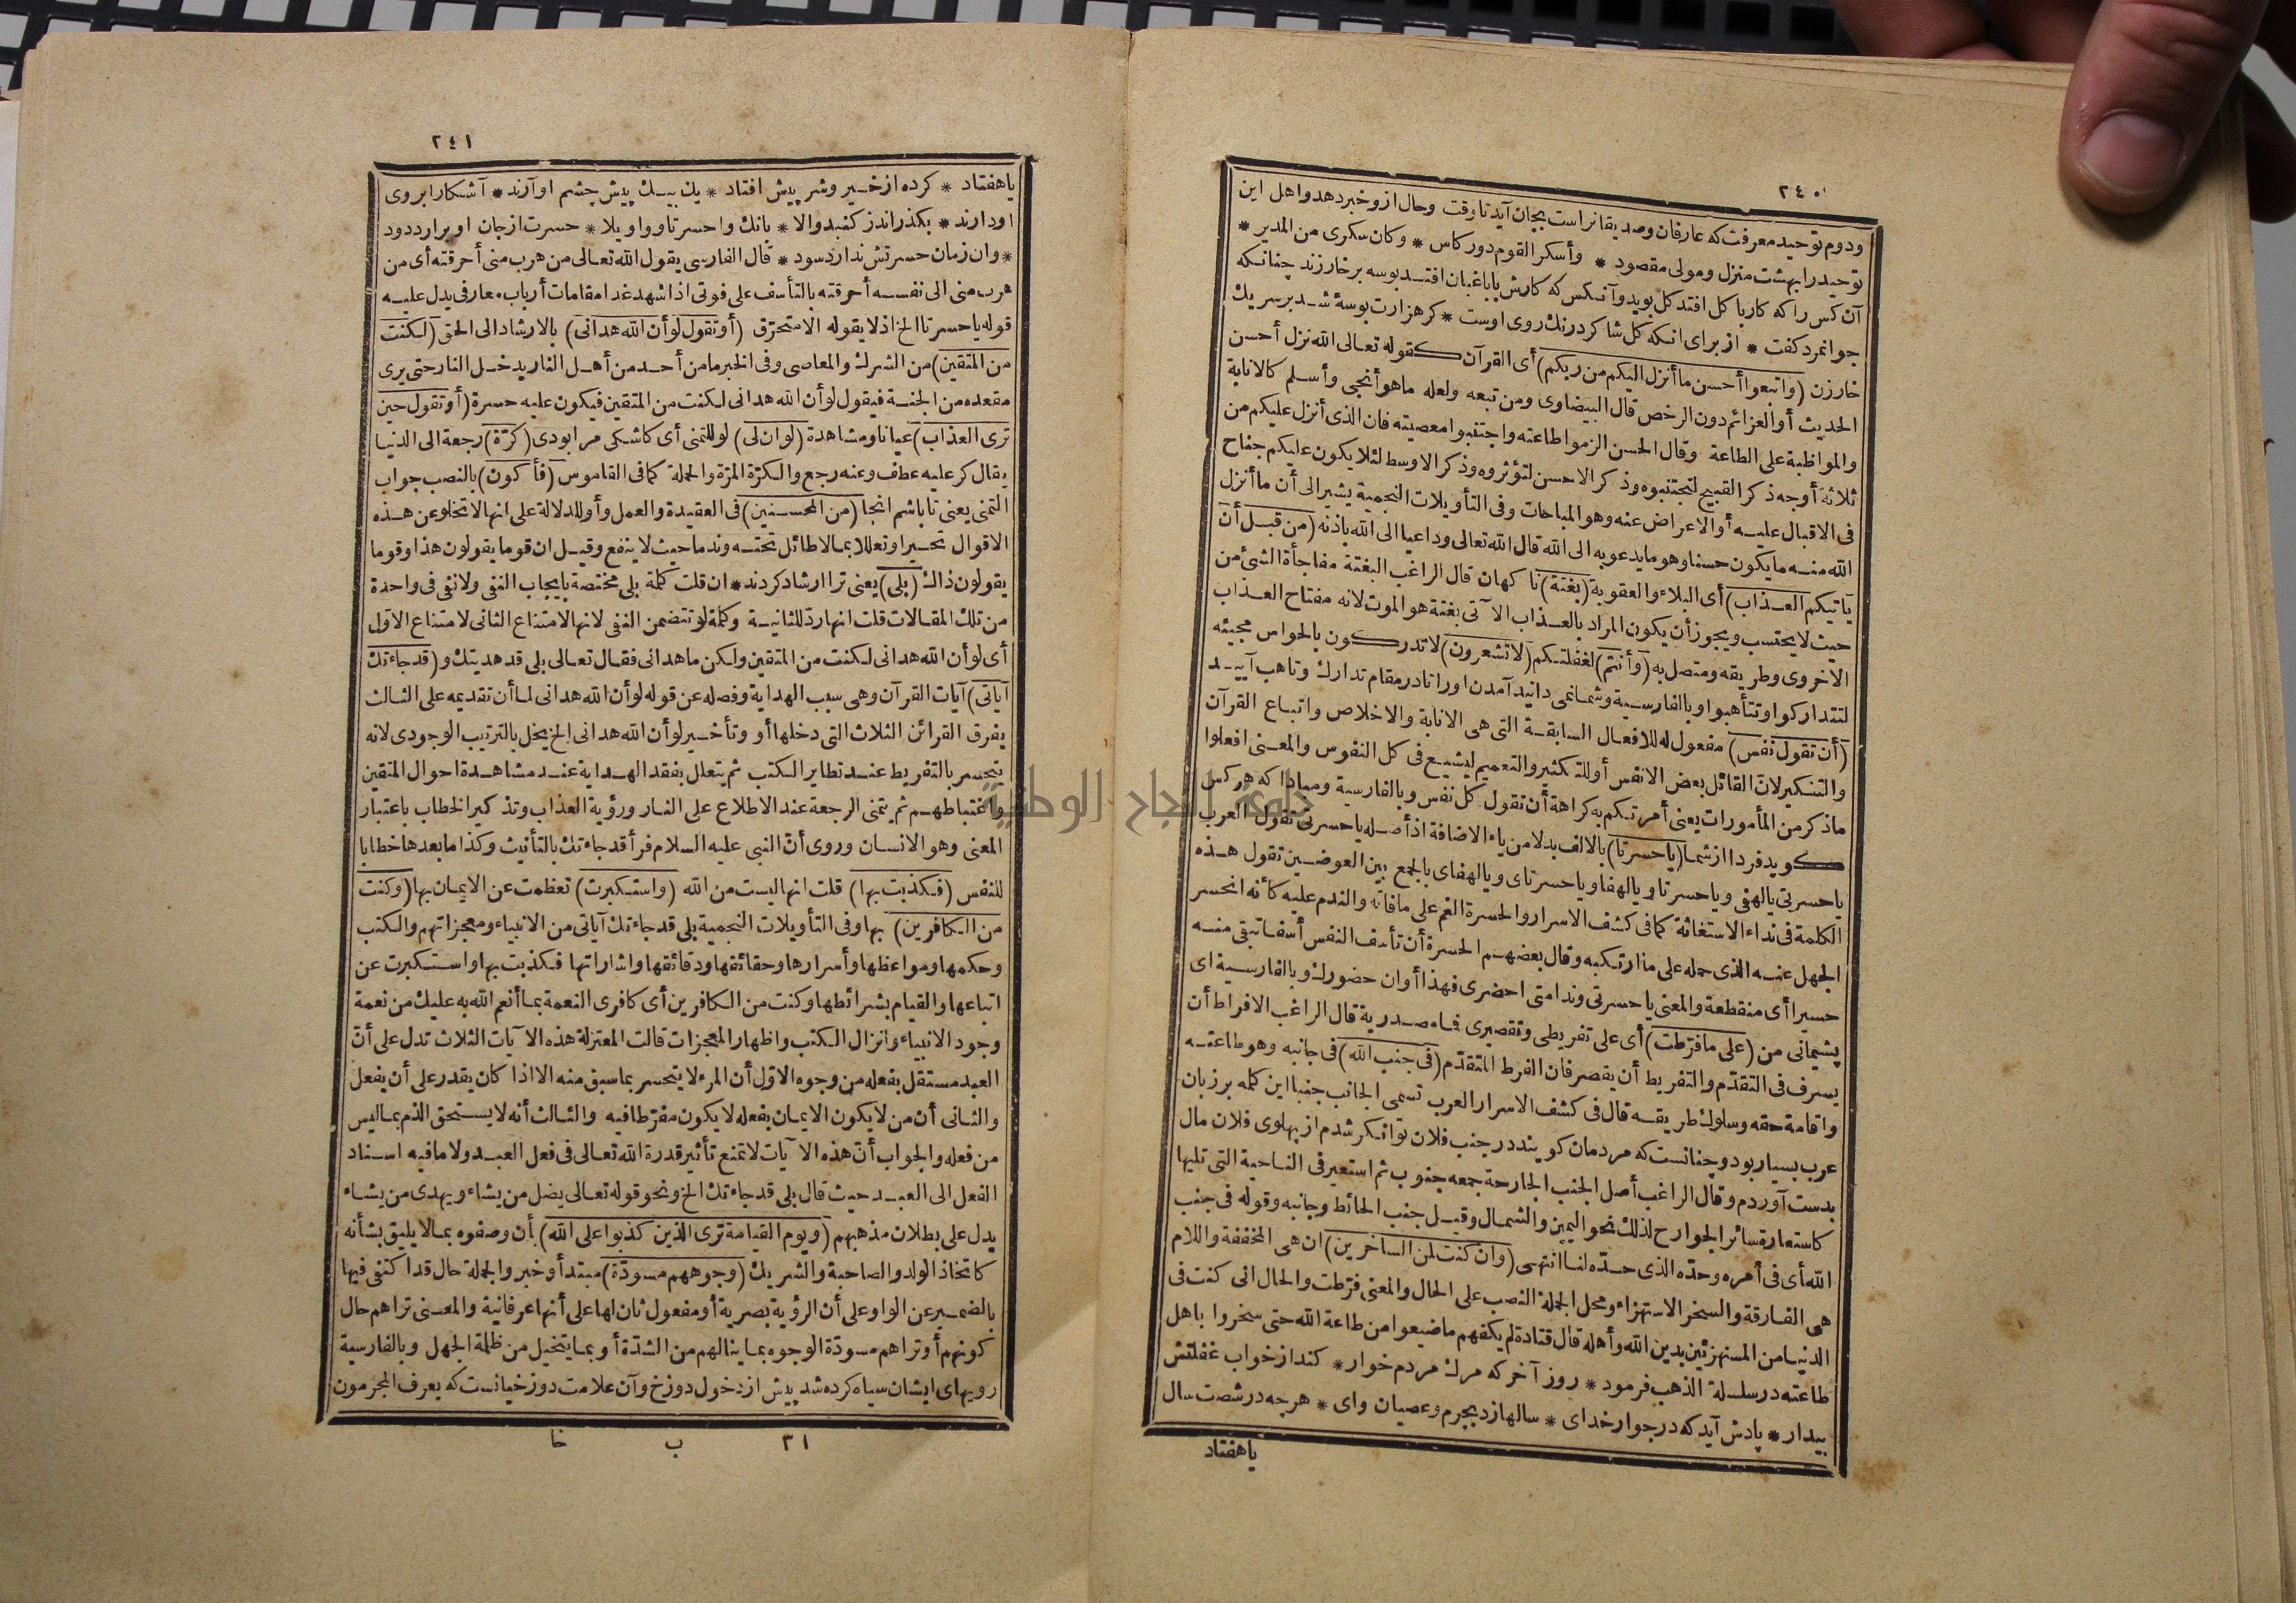 ٢٤٠
ودوم توحيد معرفت كه عارفان وصديقانراست بجان آيد تا وقت وحال ازو خبر دهد واهل اين
توحيد را بهشت منزل ومولى مقصود * وأسكر القوم دور كاس * وكان سكرى من المدير *
آن كس را كه كار با كل افتد كل بويد وآنكس كه كارش با باغبان افتد بوسه بر خار زند چنانكه
جوانمرد كفت * از براى انكه كل شا كرد رنك روى اوست * كر هزارت بوسۀ شد بر سر يك
خارزن (واتبعوا أحسن ما أنزل اليكم من ربكم) أى القرآن كقوله تعالى الله نزل أحسن
الحديث أو العزائم دون الرخص قال البيضاوى ومن تبعه ولعله ما هو أنجى وأسلم كالانابة
والمواظبة على الطاعة وقال الحسن الزموا طاعته واجتنبوا معصيته فان الذى أنزل عليكم من
ثلاثة أوجه ذكر القبيح لتجتنبوه وذكر الاحسن لتؤثروه وذكر الاوسط لئلا يكون عليكم جناح
فى الاقبال عليه أو الاعراض عنه وهو المباحات وفى التأويلات النجمية يشير الى أن ما أنزل
الله منه ما يكون حسنا وهو ما يدعو به الى الله قال الله تعالى وداعيا الى الله باذنه (من قبل أن
يأتيكم العذاب) أى البلاء والعقوبة (بغتة) نا كهان قال الراغب البغتة مفاجأة الشئ من
حيث لا يحتسب ويجوز أن يكون المراد بالعذاب الآتى بغتة هو الموت لانه مفتاح العذاب
الاخروى وطريقه ومتصل به (وأنتم) لغفلتكم (لا تشعرون) لا تدركون بالحواس مجيئه
لتتداركوا وتتأهبوا وبالفارسية وشما نمى دانيد آمدن اورا تا در مقام تدارك وتاهب آييد
(أن تقول نفس) مفعول له للافعال السابقة التى هى الانابة والاخلاص واتباع القرآن
والتنكير لانّ القائل بعض الانفس أو للتكثير والتعميم ليشيع فى كل النفوس والمعنى افعلوا
ما ذكر من المأمورات يعنى أمرتكم به كراهة أن تقول كل نفس وبالفارسية ومبادا كه هر كس
كويد فردا از شما (يا حسرتا) بالالف بدلا من ياء الاضافة اذ أصله يا حسرتى تقول العرب
يا حسرتى يا لهفى ويا حسرتا ويا لهفا ويا حسرتاى ويا لهفاى بالجمع بين العوضين تقول هذه
الكلمة فى نداء الاستغاثة كما فى كشف الاسرار والحسرة الغم على ما فاته والندم عليه كأنه انحسر
الجهل عنه الذى حمله على ما ارتكبه وقال بعضهم الحسرة أن تأسف النفس أسفا تبقى منه
حسيرا أى منقطعة والمعنى يا حسرتى وندامتى احضرى فهذا أوان حضورك وبالفارسية اى
پشيمانى من (على ما فرّطت) أى على تفريطى وتقصيرى فما مصدرية قال الراغب الافراط أن
يسرف فى التقدّم والتفريط أن يقصر فان الفرط المتقدّم (فى جنب الله) فى جانبه وهو طاعته
واقامة حقه وسلوك طريقه قال فى كشف الاسرار العرب تسمى الجانب جنبا اين كلمه بر زبان
عرب بسيار بود وچنانست كه مردمان كويند در جنب فلان توانكر شدم از پهلوى فلان مال
بدست آوردم وقال الراغب أصل الجنب الجارحة جمعه جنوب ثم استعير فى الناحية التى تليها
كاستعارة سائر الجوارح لذلك نحو اليمين والشمال وقيل جنب الحائط وجانبه وقوله فى جنب
الله أى فى أمره وحدّه الذى حدّه لنا انتهى (وان كنت لمن الساخرين) ان هى المخففة واللام
هى الفارقة والسخر الاستهزاء ومحل الجملة النصب على الحال والمعنى فرّطت والحال انى كنت فى
الدنيا من المستهزئين بدين الله وأهله قال قتادة لم يكفهم ما ضيعوا من طاعة الله حتى سخروا باهل
طاعته در سلسلة الذهب فرمود * روز آخر كه مرك مردم خوار * كند از خواب غفلتش
بيدار * يادش آيد كه در جوار خداى * سالها زد بجرم وعصيان واى * هرچه در شصت سال
يا هفتاد
٢٤١
يا هفتاد * كرده از خير وشر پيش افتاد * يك بيك پيش چشم او آرند * آشكارا بروى
او دارند * بكذراند ز كنبد والا * بانك واحسرتا وواويلا * حسرت از جان او برارد دود
* وان زمان حسرتش ندارد سود * قال الفارسى يقول الله تعالى من هرب منى أحرقته أى من
هرب منى الى نفسه أحرقته بالتأسف على فوتى اذا شهد غدا مقامات أرباب معارفى يدل عليه
قوله يا حسرتا الخ اذ لا يقوله الا متحرّق (أو تقول لو أن الله هدانى) بالارشاد الى الحق (لكنت
من المتقين) من الشرك والمعاصى وفى الخبر ما من أحد من أهل النار يدخل النار حتى يرى
مقعده من الجنة فيقول لو أن الله هدانى لكنت من المتقين فيكون عليه حسرة (أو تقول حين
ترى العذاب) عيانا ومشاهدة (لو ان لى) لو للتمنى أى كاشكى مرا بودى (كرّة) رجعة الى الدنيا
يقال كر عليه عطف وعنه رجع والكرّة المرّة والجملة كما فى القاموس (فأكون) بالنصب جواب
التمنى يعنى تا باشم انجا (من المحسنين) فى العقيدة والعمل وأو للدلالة على انها لا تخلو عن هذه
الاقوال تحسيرا وتعللا بما لا طائل تحته وندما حيث لا ينفع وقيل ان قوما يقولون هذا وقوما
يقولون ذاك (بلى) يعنى ترا ارشاد كردند * ان قلت كلمة بلى مختصة بايجاب النفى ولا نفى فى واحدة
من تلك المقالات قلت انها ردّ للثانية وكلمة لو تتضمن النفى لانها لامتناع الثانى لامتناع الاوّل
أى لو أن الله هدانى لكنت من المتقين ولكن ما هدانى فقال تعالى بلى قد هديتك و(قد جاءتك
آياتى) آيات القرآن وهى سبب الهداية وفصله عن قوله لو أن الله هدانى لما أن تقديمه على الثالث
يفرق القرائن الثلاث التى دخلها أو وتأخير لو أن الله هدانى الخ يخل بالترتيب الوجودى لانه
يتحسر بالتفريط عند تطاير الكتب ثم يتعلل بفقد الهداية عند مشاهدة احوال المتقين
واغتباطهم ثم يتمنى الرجعة عند الاطلاع على النار ورؤية العذاب وتذكير الخطاب باعتبار
المعنى وهو الانسان وروى أنّ النبى عليه السلام قرأ قد جاءتك بالتأنيث وكذا ما بعدها خطابا
للنفس (فكذبت بها) قلت انها ليست من الله (واستكبرت) تعظمت عن الايمان بها (وكنت
من الكافرين) بها وفى التأويلات النجمية بلى قد جاءتك آياتى من الانبياء ومعجزاتهم والكتب
وحكمها ومواعظها وأسرارها وحقائقها ودقائقها واشاراتها فكذبت بها واستكبرت عن
اتباعها والقيام بشرائطها وكنت من الكافرين أى كافرى النعمة بما أنعم الله به عليك من نعمة
وجود الانبياء وانزال الكتب واظهار المعجزات قالت المعتزلة هذه الآيات الثلاث تدل على أنّ
العبد مستقل بفعله من وجوه الاوّل أن المرء لا يتحسر بما سبق منه الا اذا كان يقدر على أن يفعل
والثانى أن من لا يكون الايمان بفعله لا يكون مفرّطا فيه والثالث أنه لا يستحق الذم بما ليس
من فعله والجواب أنّ هذه الآيات لا تمنع تأثير قدرة الله تعالى فى فعل العبد ولا ما فيه اسناد
الفعل الى العبد حيث قال بلى قد جاءتك الخ ونحو قوله تعالى يضل من يشاء ويهدى من يشاء
يدل على بطلان مذهبهم (ويوم القيامة ترى الذين كذبوا على الله) بأن وصفوه بما لا يليق بشأنه
كاتخاذ الولد والصاحبة والشريك (وجوههم مسودّة) مبتدأ وخبر والجملة حال قد اكتفى فيها
بالضمير عن الواو على أن الرؤية بصرية أو مفعول ثان لها على أنها عرفانية والمعنى تراهم حال
كونهم أو تراهم مسودّة الوجوه بما ينالهم من الشدّة أو بما يتخيل من ظلمة الجهل وبالفارسية
رويهاى ايشان سياه كرده شد پيش از دخول دوزخ وآن علامت دوزخيانست كه يعرف المجرمون
٣١ ب خا
النجاح الوطنية